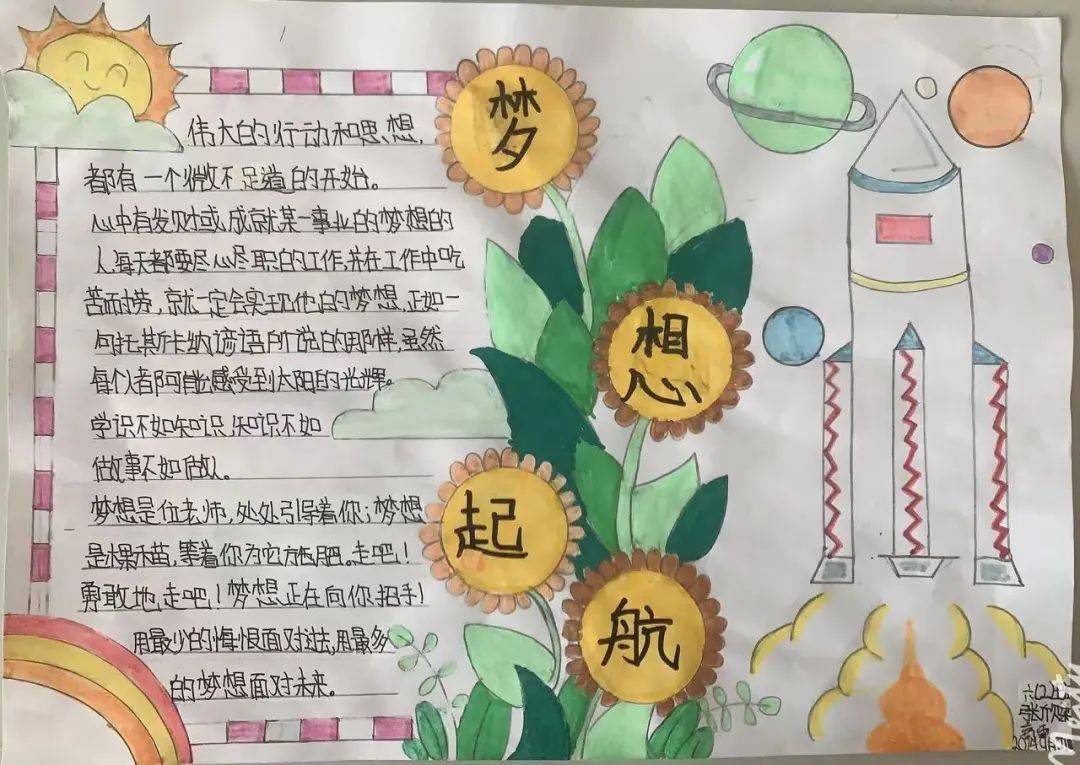 梦
想
起
航
伟大的行动和思想,
都有一个微不足道的开始。
心中有发财或成就某一事业的梦想的
人每天都要尽心尽职的工作,并在工作中吃
苦而耐劳,就一定会实现他的梦想,正如一
句托斯卡纳谚语所说的那样,虽然
每个人都可能感受到太阳的光辉。
学识不如知识,知识不如
做事不如做人。
梦想是位老师,处处引导着你;梦想
是棵禾苗,等着你为它施肥。走吧!
勇敢地走吧!梦想正在向你招手!
用最少的悔恨面对过去,用最多
的梦想面对未来。